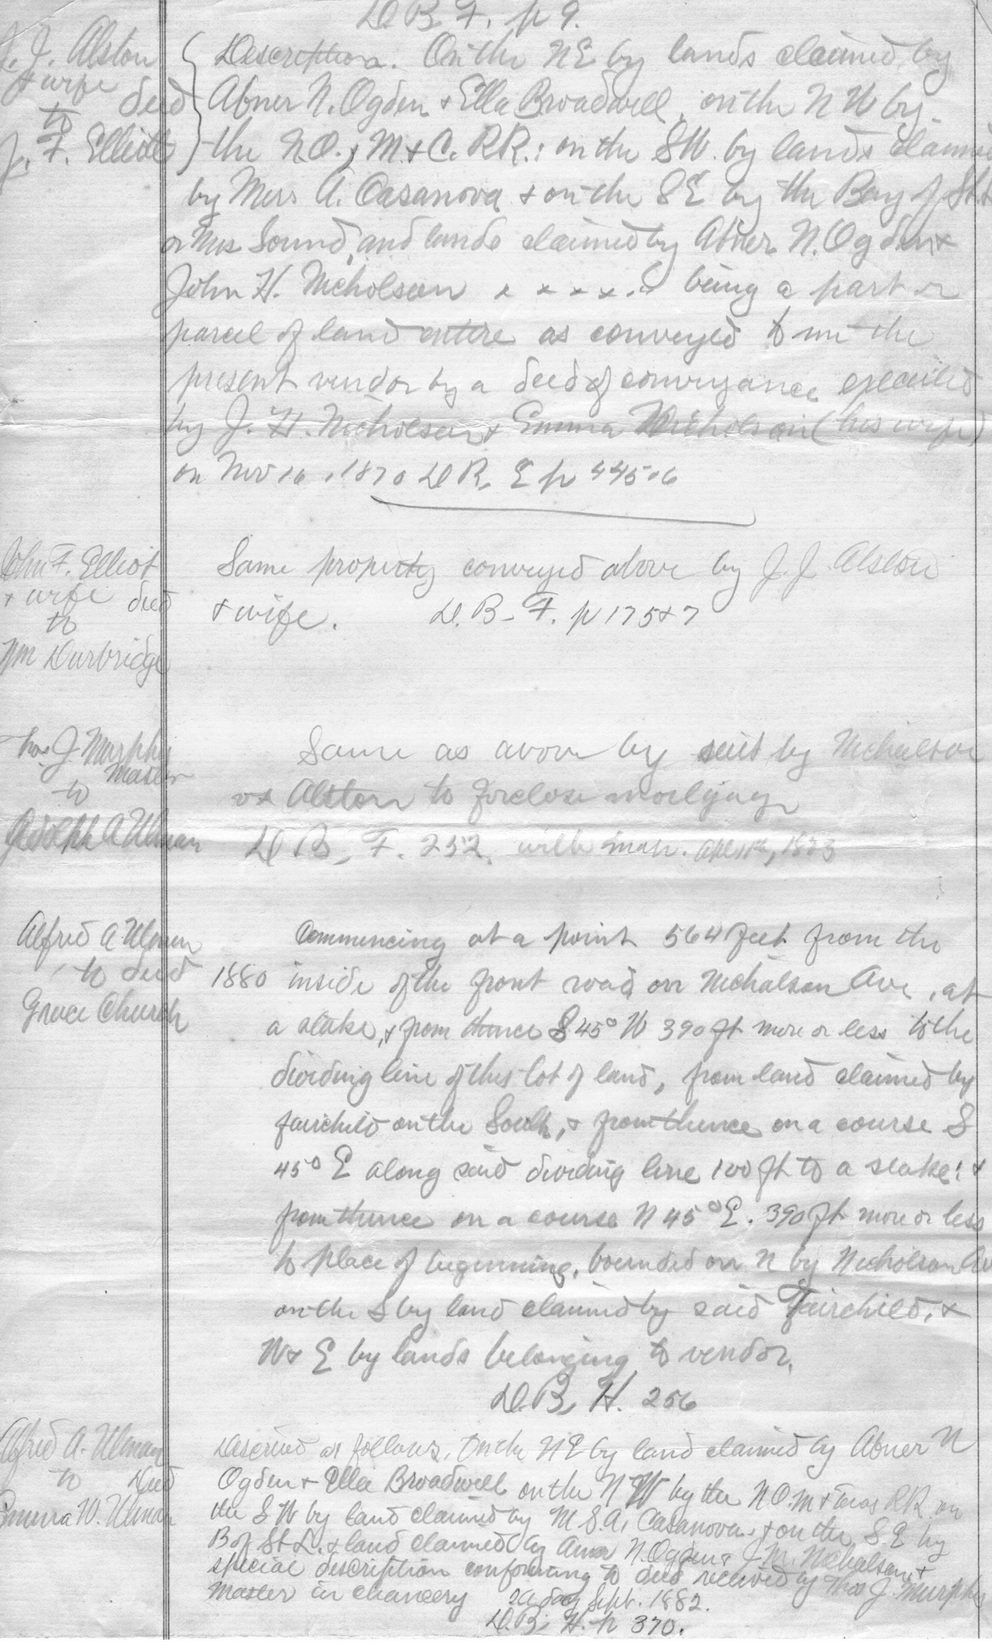 D. B. F. p 9.
J. J. Alston
& wife
deed
to
J. F. Elliott
Description. On the N E by lands claimed by
Abner N. Ogden & Ella Broadwell, on the N W by
the N.O., M. & C. R.R.: on the S W. by lands claimed
by Miss A. Casanova & on the S E by the Bay of St. L
or Miss Sound, and lands claimed by Abner N. Ogden &
John H. Nicholson x x x x . being a part or
parcel of land entire as conveyed to me the
present vendor by a deed of conveyance executed
by J. H. Nicholson & Emma Nicholson (his wife)
on Nov 16, 1870 D R. E p 445-6
John F. Elliot
& wife deed
to
Wm Durbridge
Same property conveyed above by J. J. Alston
& wife. D. B. F. p 175 & 7
Thos J Murphy
Master
to
Adolph A Ulman
Same as above by suit by Nicholson
vs Alston to foreclose mortgage
D B. F. 252. with map. 1883
Alfred A Ulman
to deed
Grace Church
Commencing at a point 564 feet from the
1880 inside of the front road on Nicholson Ave, at
a stake, & from thence S 45° W 390 ft more or less to the
dividing line of this lot of land, from land claimed by
fairchild on the South, & from thence on a course S
45° E along said dividing line 100 ft to a stake: &
from thence on a course N 45° E. 390 ft more or less
to place of beginning, bounded on N by Nicholson Av
on the S by land claimed by said Fairchild, &
W & E by lands belonging to vendor.
D. B. H. 256
Alfred A. Ulman
to Deed
Emma W. Ulman
Described as follows, On the N E by land claimed by Abner N
Ogden & Ella Broadwell on the N W by the N O. M & Texas R R. on
the S W by land claimed by M. S. A. Casanova. & on the S. E by
B of St L. & land claimed by Abner N. Ogden & J. M. Nicholson &
special description conforming to deed received by Thos J. Murphy
Master in chancery day Sept. 1882.
D. B. H. p 370.